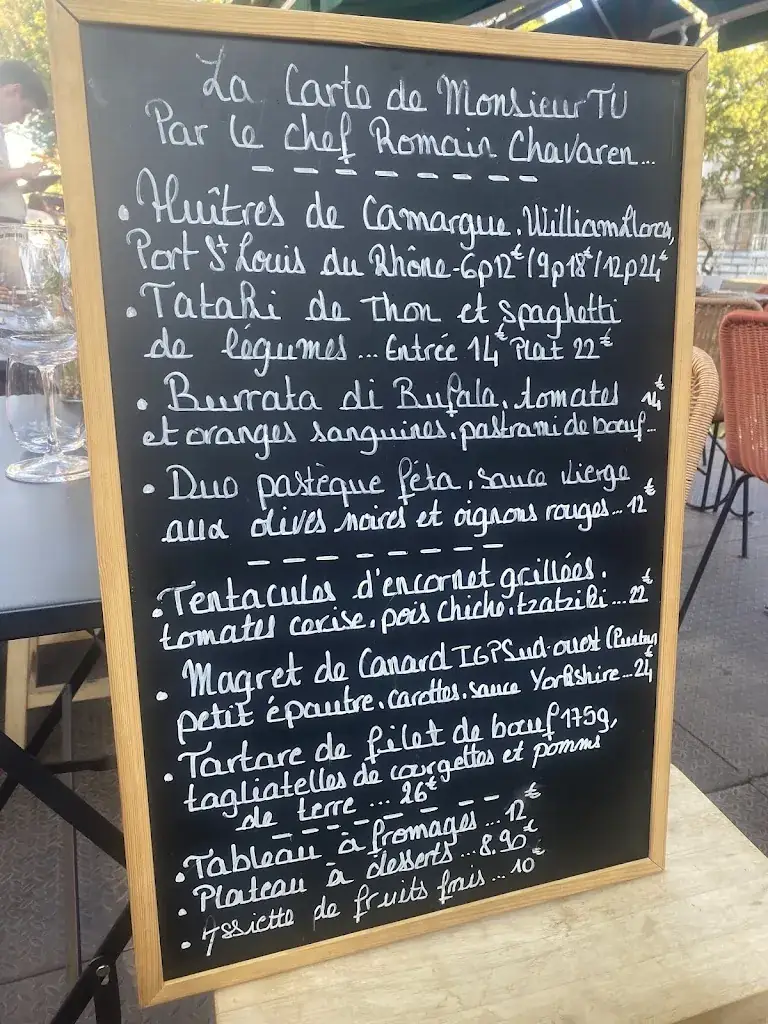 La Carte de Monsieur TU
Par le chef Romain Chavaren...
. Huîtres de Camargue. William Llorca,
Port St Louis du Rhône - 6p 12€ / 9p 18€ / 12p 24€
. Tataki de Thon et spaghetti
de légumes ... Entrée 14€ Plat 22€
. Burrata di Bufala, tomates 14€
et oranges sanguines, pastrami de boeuf...
. Duo pastèque féta, sauce vierge
aux olives noires et oignons rouges... 12€
. Tentacules d'encornet grillées,
tomates cerise, pois chiche, tzatziki ... 22€
. Magret de Canard IGP Sud-ouest
petit épautre, carottes, sauce Yorkshire ... 24€
. Tartare de filet de boeuf 175g,
tagliatelles de courgettes et pommes
de terre ... 26€
. Tableau à fromages ... 12€
. Plateau à desserts ... 8.90€
. Assiette de fruits frais ... 10€